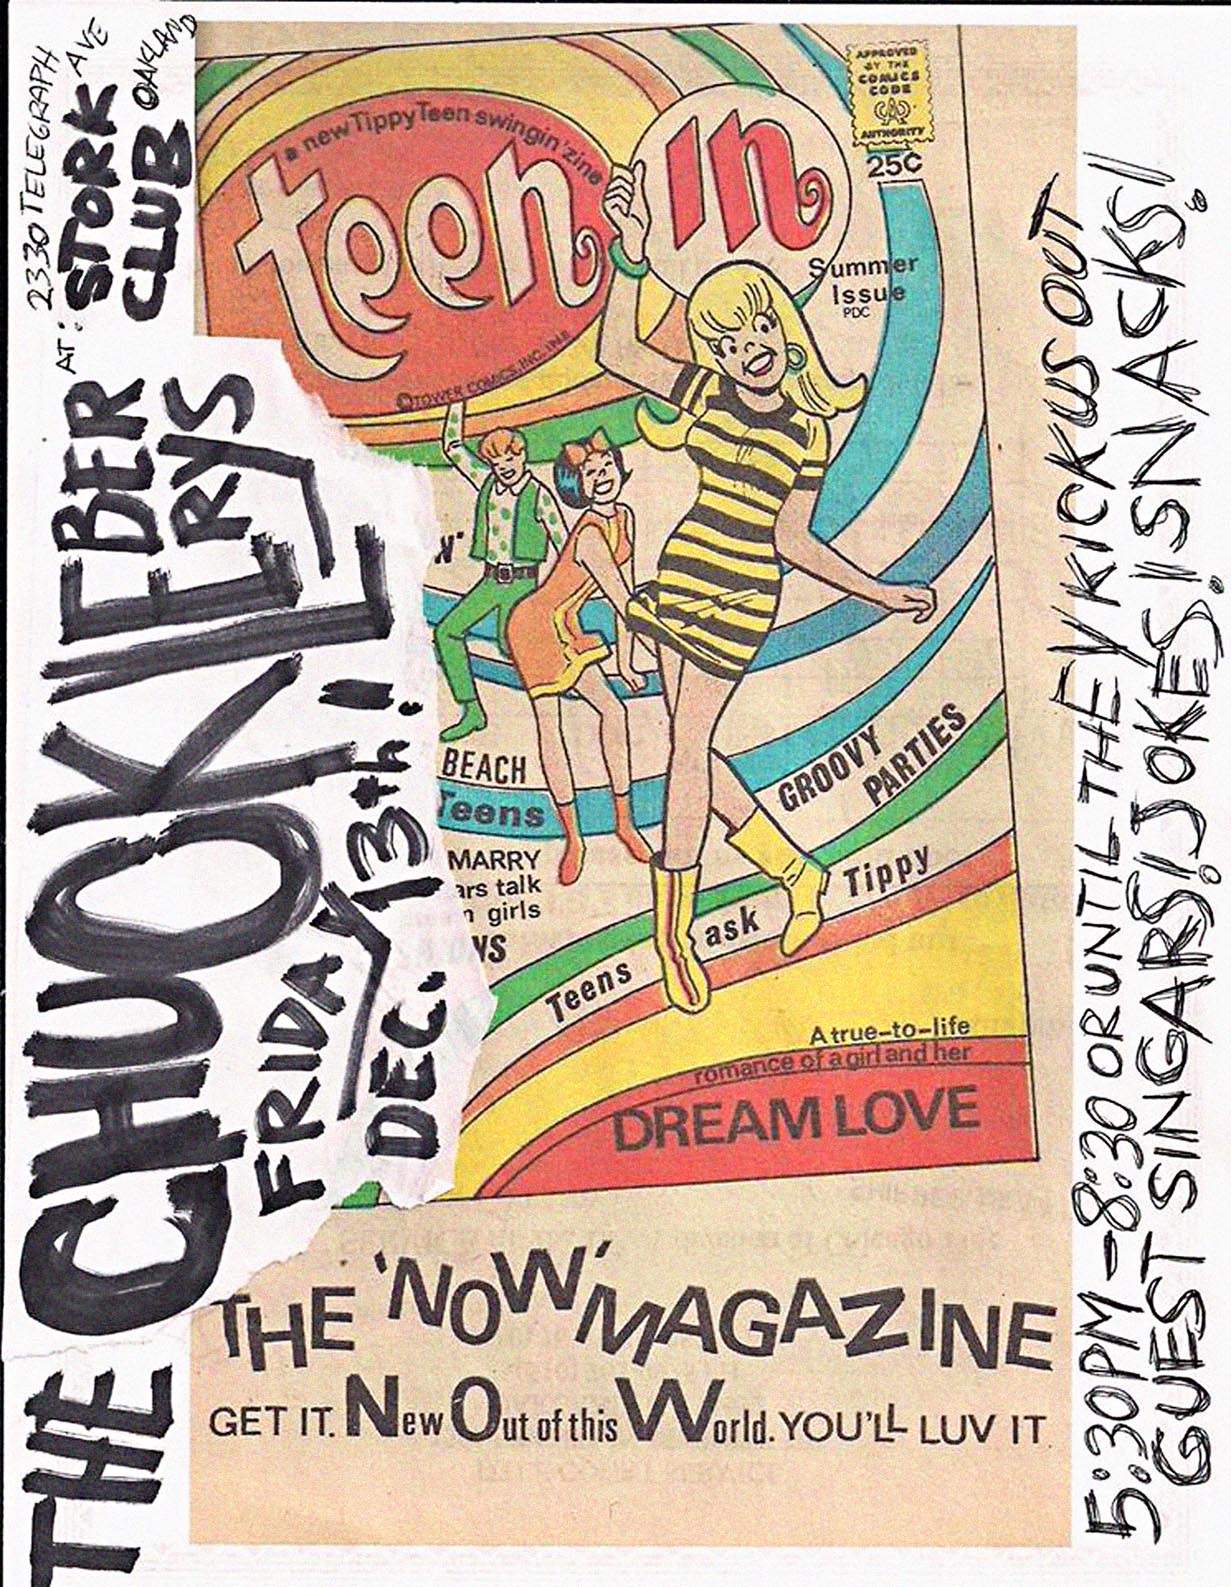 2330 TELEGRAPH AVE
OAKLAND
AT: STORK
CLUB
THE CHUCKLE BER
RYS
FRIDAY 13th!
DEC.
a new Tippy Teen swingin' 'zine
teen
IN
APPROVED
BY THE
COMICS
CODE
CA
AUTHORITY
25¢
Summer
Issue
PDC
©TOWER COMICS, INC.
W'
BEACH
Teens
MARRY
ars talk
n girls
NS
GROOVY
PARTIES
Teens ask Tippy
A true-to-life
romance of a girl and her
DREAM LOVE
THE 'NOW' MAGAZINE
GET IT. New Out of this World. YOU'LL LUV IT
5:30PM - 8:30 OR UNTIL THEY KICK US OUT
GUEST SINGARS! JOKES!! SNACKS!!